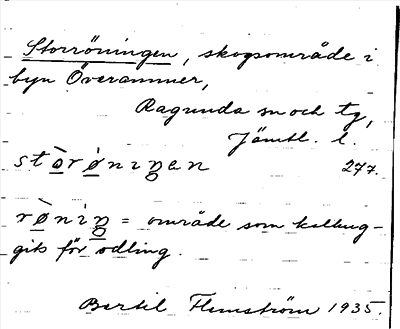 Storröningen, skogsområde i
byn Överammer,
Ragunda sn och tg,
Jämtl. l.
stòrǿniŋen 277.
rø̀niŋ = område som kalhug-
gits för odling.
Bertil Flemström 1935.